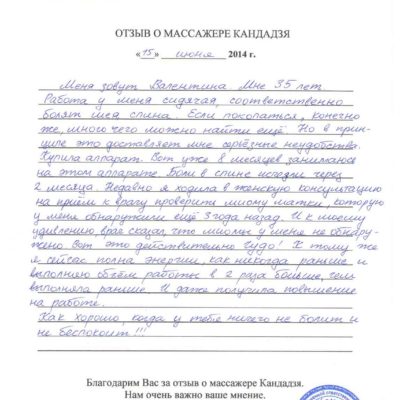 ОТЗЫВ О МАССАЖЕРЕ КАНДАДЗЯ
«15» июня 2014 г.
Меня зовут Валентина Мне 35 лет
Работа у меня сидячая, соответственно
болят шея спина. Если покопаться, конечно
же, много чего можно найти ещё. Но в прин-
ципе это доставляет мне серьёзные неудобства.
Купила аппарат. Вот уже 8 месяцев занимаюсь
на этом аппарате. Боли в спине исчезли через
2 месяца. Недавно я ходила в женскую консультацию
на приём к врачу проверить миому матки, которую
у меня обнаружили ещё 3 года назад. И к моему
удивлению, врач сказал, что миомы у меня не обнару-
жено. Вот это действительно чудо! К тому же
я сейчас полна энергии, как никогда раньше и
выполняю объём работы в 2 раза больше, чем
выполняла раньше. И даже получила повышение
на работе.
Как хорошо, когда у тебя ничего не болит и
не беспокоит!!!
Благодарим Вас за отзыв о массажере Кандадзя.
Нам очень важно ваше мнение.